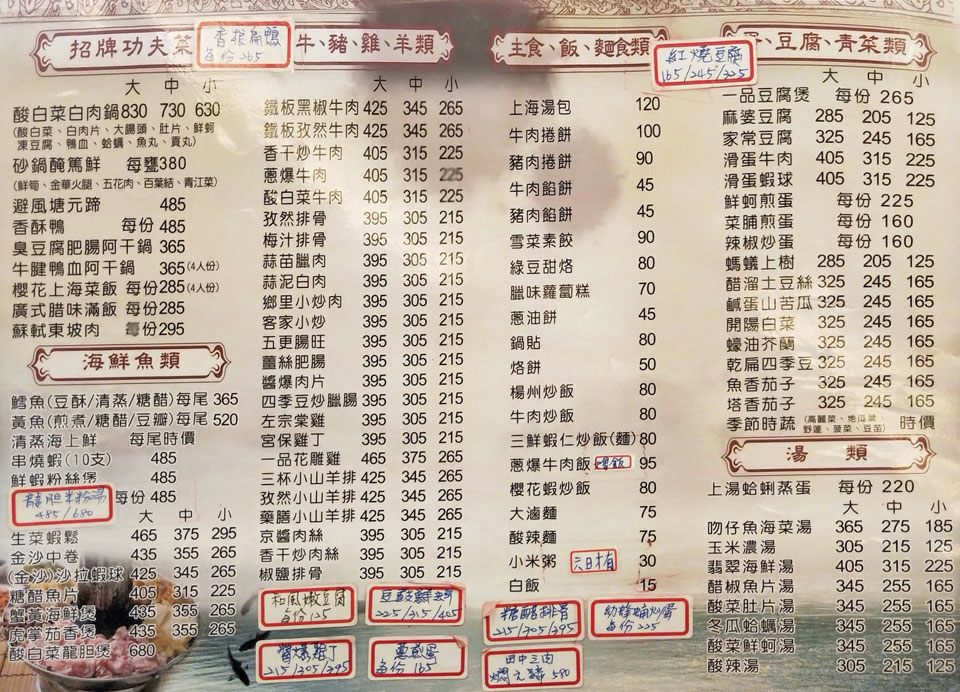 招牌功夫菜
香根扁鴨
每份265
大 中 小
酸白菜白肉鍋 830 730 630
(酸白菜、白肉片、大腸頭、肚片、鮮蚵
凍豆腐、鴨血、蛤蠣、魚丸、貢丸)
砂鍋醃篤鮮 每甕380
(鮮筍、金華火腿、五花肉、百葉結、青江菜)
避風塘元蹄 485
香酥鴨 每份485
臭豆腐肥腸阿干鍋 365
牛腱鴨血阿干鍋 365(4人份)
櫻花上海菜飯 每份285(4人份)
廣式腊味滿飯 每份285
蘇軾東坡肉 每份295
海鮮魚類
鱈魚(豆酥/清蒸/糖醋)每尾 365
黃魚(煎煮/糖醋/豆瓣)每尾 520
清蒸海上鮮 每尾時價
串燒蝦(10支) 485
鮮蝦粉絲煲 485
龍胆米粉湯
485/680
每份485
大 中 小
生菜蝦鬆 465 375 295
金沙中卷 435 355 265
(金沙)沙拉蝦球 425 345 265
糖醋魚片 405 315 225
蟹黃海鮮煲 435 355 265
虎掌茄香煲 435 355 265
酸白菜龍胆煲 680
牛、豬、雞、羊類
大 中 小
鐵板黑椒牛肉 425 345 265
鐵板孜然牛肉 425 345 265
香干炒牛肉 405 315 225
蔥爆牛肉 405 315 225
酸白菜牛肉 405 315 225
孜然排骨 395 305 215
梅汁排骨 395 305 215
蒜苗臘肉 395 305 215
蒜泥白肉 395 305 215
鄉里小炒肉 395 305 215
客家小炒 395 305 215
五更腸旺 395 305 215
薑絲肥腸 395 305 215
醬爆肉片 395 305 215
四季豆炒臘腸 395 305 215
左宗棠雞 395 305 215
宮保雞丁 395 305 215
一品花雕雞 465 375 265
三杯小山羊排 425 345 265
孜然小山羊排 425 345 265
藥膳小山羊排 425 345 265
京醬肉絲 395 305 215
香干炒肉絲 395 305 215
椒鹽排骨 395 305 215
和風嫩豆腐
每份125
225/315/405
醬爆雞丁
215/305/395
每份165
主食、飯、麵食類
上海湯包 120
牛肉捲餅 100
豬肉捲餅 90
牛肉餡餅 45
豬肉餡餅 45
雪菜素餃 90
綠豆甜烙 80
臘味蘿蔔糕 70
蔥油餅 45
鍋貼 80
烙餅 50
楊州炒飯 80
牛肉炒飯 80
三鮮蝦仁炒飯(麵) 80
蔥爆牛肉飯 燴飯 95
櫻花蝦炒飯 80
大滷麵 75
酸辣麵 75
小米粥 六日才有 30
白飯 15
糖醋排骨
215/305/395
每份225
田中三肉
燜元蹄 580
紅燒豆腐
165/245/325
、豆腐、青菜類
大 中 小
一品豆腐煲 每份265
麻婆豆腐 285 205 125
家常豆腐 325 245 165
滑蛋牛肉 405 315 225
滑蛋蝦球 405 315 225
鮮蚵煎蛋 每份225
菜脯煎蛋 每份160
辣椒炒蛋 每份160
螞蟻上樹 285 205 125
醋溜土豆絲 325 245 165
鹹蛋山苦瓜 325 245 165
開陽白菜 325 245 165
蠔油芥蘭 325 245 165
乾扁四季豆 325 245 165
魚香茄子 325 245 165
塔香茄子 325 245 165
季節時蔬 (高麗菜、地瓜葉、
野蓮、菠菜、豆苗) 時價
湯類
上湯蛤蜊蒸蛋 每份220
大 中 小
吻仔魚海菜湯 365 275 185
玉米濃湯 305 215 125
翡翠海鮮湯 405 315 225
醋椒魚片湯 345 255 165
酸菜肚片湯 345 255 165
冬瓜蛤蠣湯 345 255 165
酸菜鮮蚵湯 345 255 165
酸辣湯 305 215 125